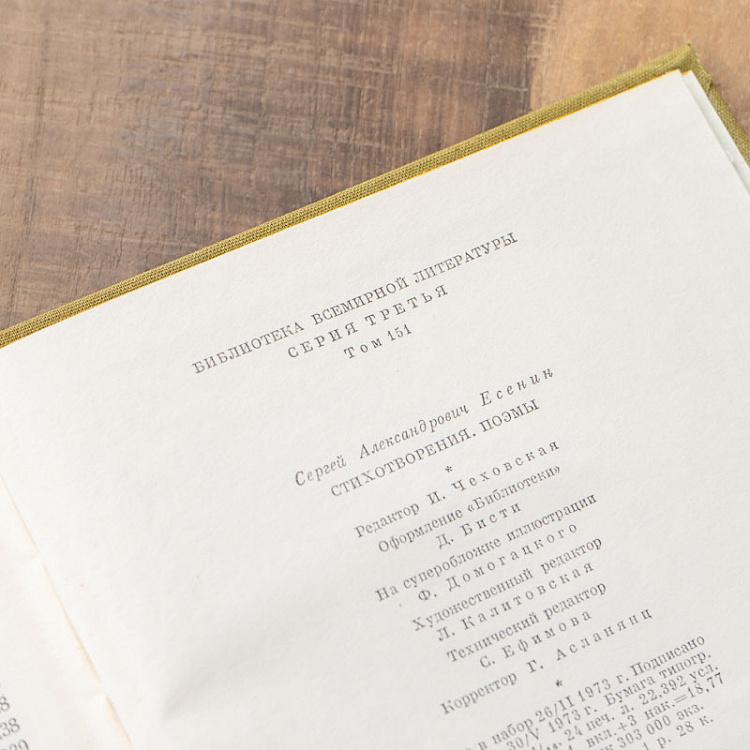 БИБЛИОТЕКА ВСЕМИРНОЙ ЛИТЕРАТУРЫ
СЕРИЯ ТРЕТЬЯ
Том 151
Сергей Александрович Есенин
СТИХОТВОРЕНИЯ. ПОЭМЫ
*
Редактор И. Чеховская
Оформление «Библиотеки»
Д. Бисти
На суперобложке иллюстрации
Ф. Домогацкого
Художественный редактор
Л. Калитовская
Технический редактор
С. Ефимова
Корректор Г. Асланянц
*
в набор 26/II 1973 г. Подписано
0/V 1973 г. Бумага типогр.
24 печ. л. 22,392 усл.
вкл.+3 нак.=18,77
303 000 экз.
р. 28 к.
8
38
39